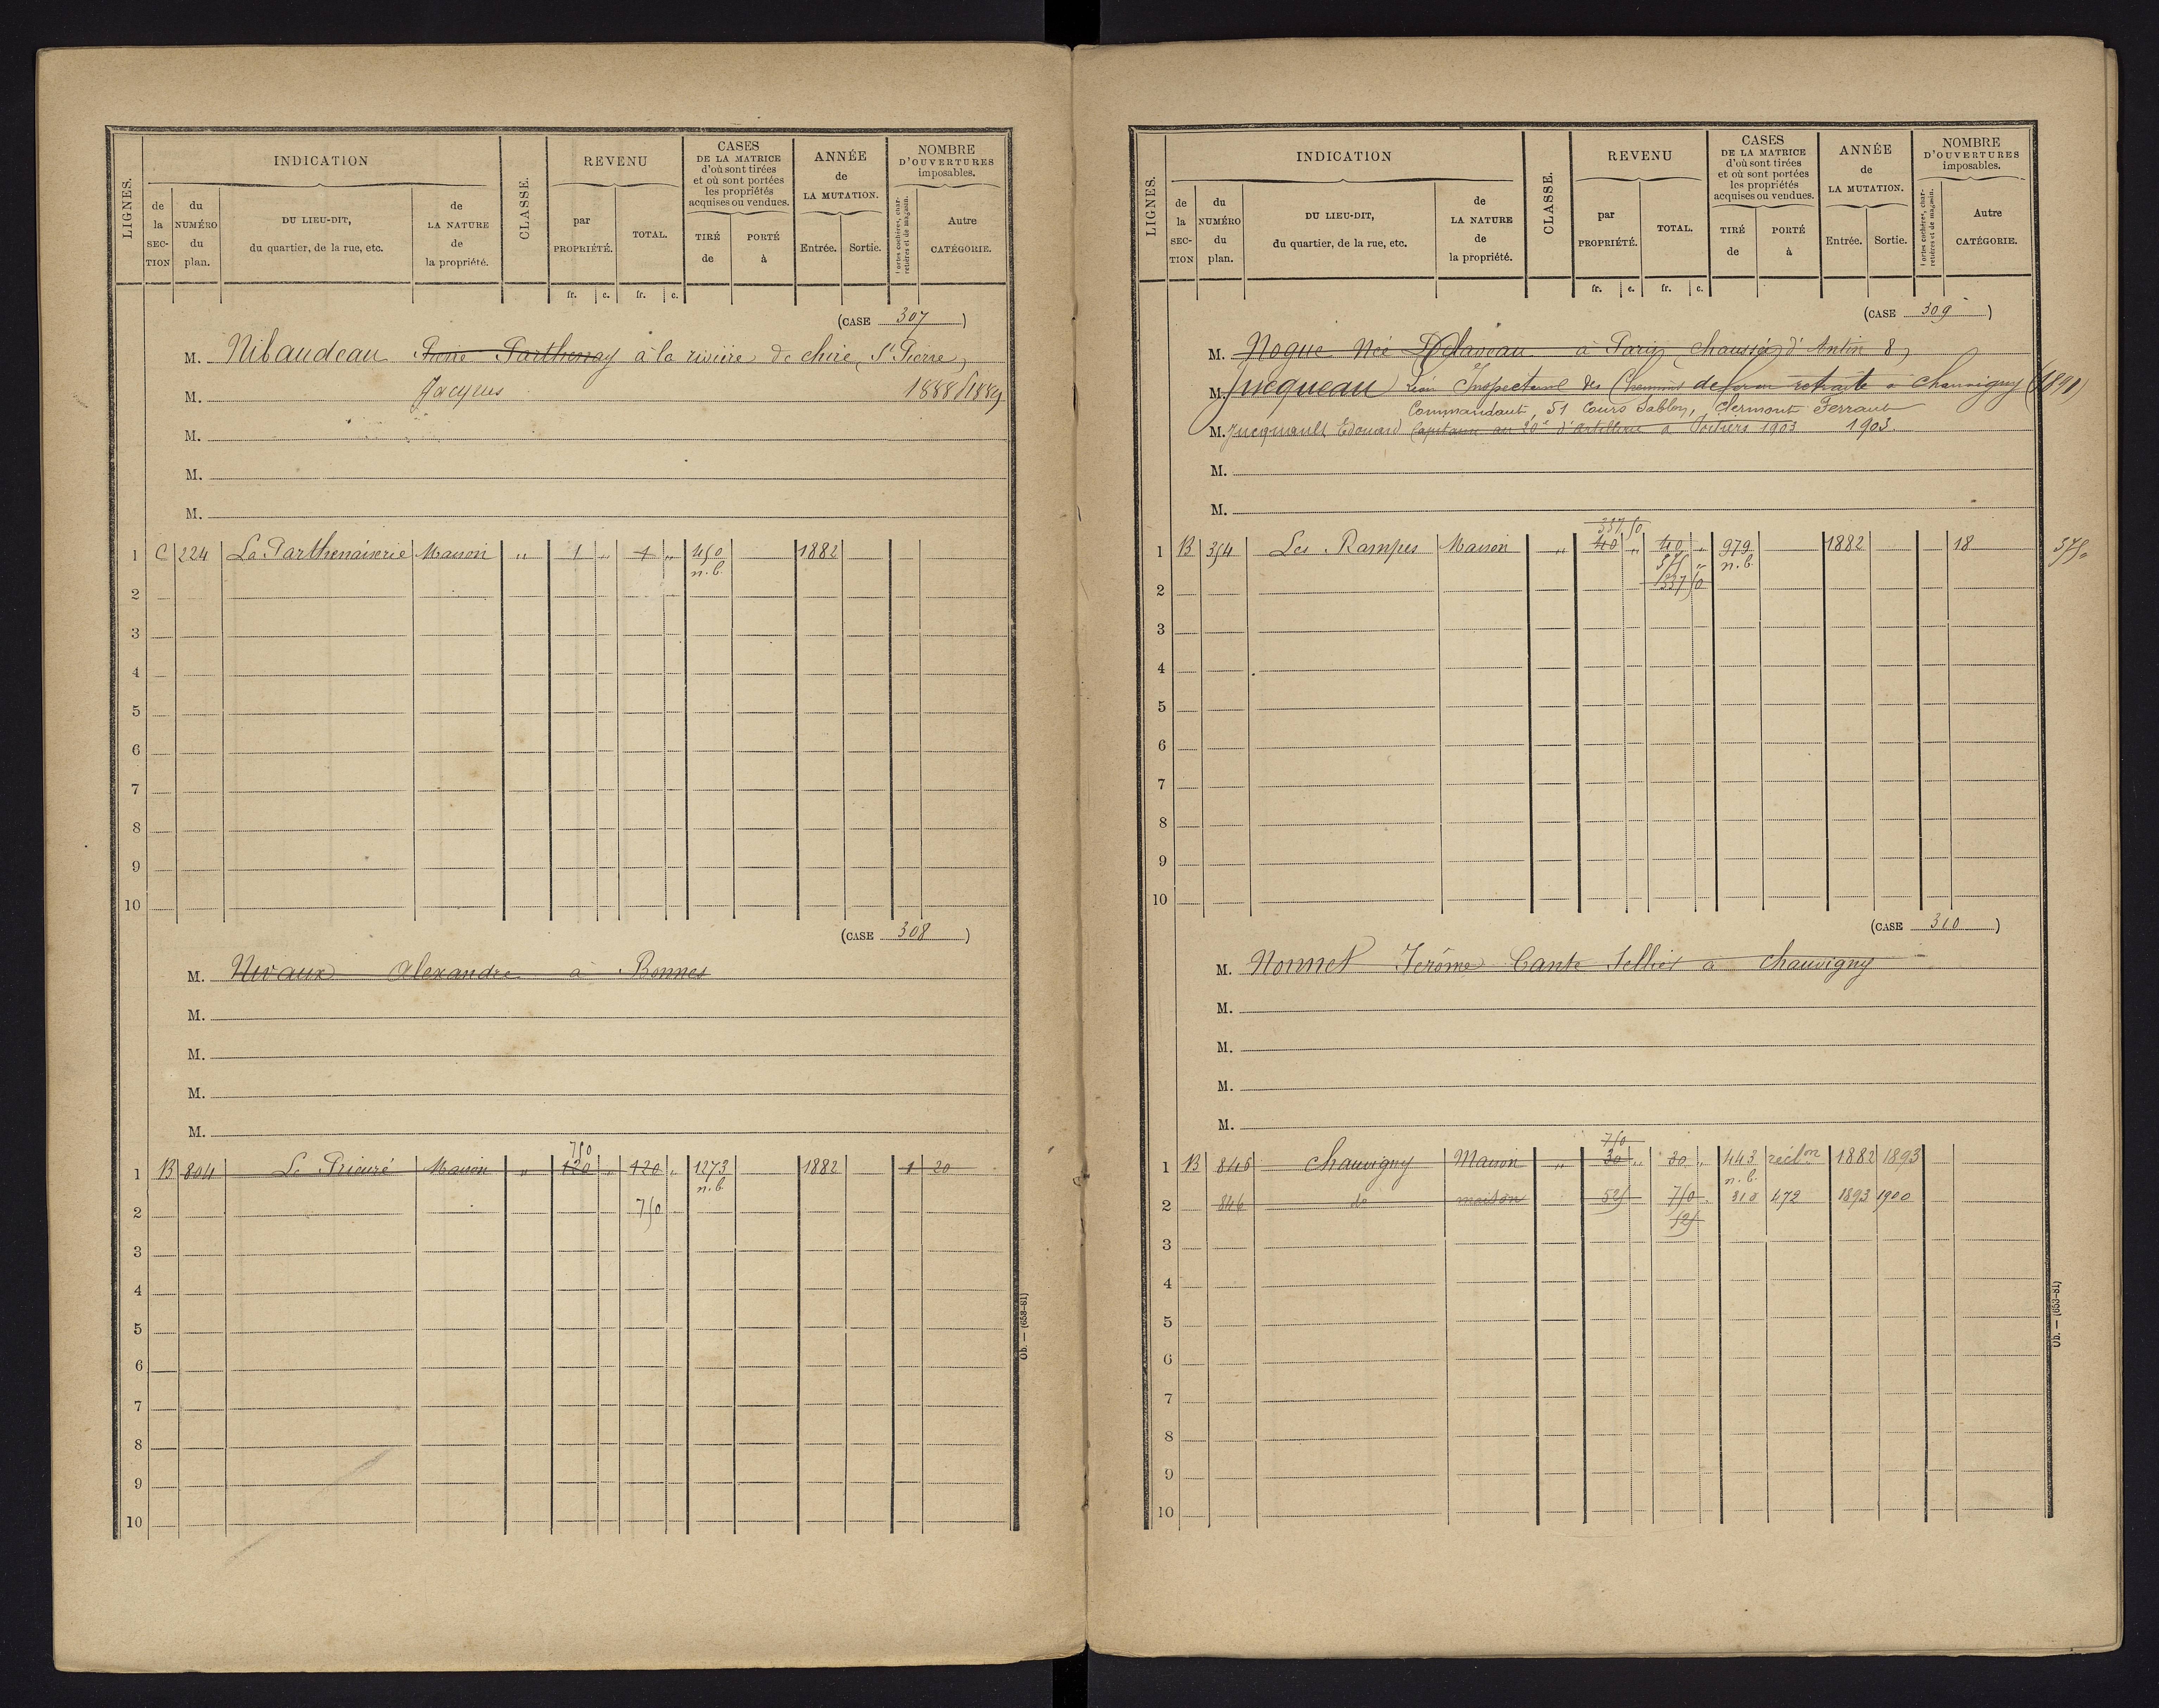 LIGNES.
INDICATION
de la SECTION
du NUMÉRO du plan.
DU LIEU-DIT, du quartier, de la rue, etc.
de LA NATURE de la propriété.
CLASSE.
REVENU
par PROPRIÉTÉ.
TOTAL.
CASES DE LA MATRICE d'où sont tirées et où sont portées les propriétés acquises ou vendues.
TIRÉ de
PORTÉ à
ANNÉE de LA MUTATION.
Entrée.
Sortie.
NOMBRE D'OUVERTURES imposables.
Portes cochères, charretières et de magasin.
Autre CATÉGORIE.
fr. c. fr. c.
(CASE 307)
M. Nibaudeau Pierre Parthenay à la rivière de chiré, St Pierre,
M. Jacques 1888
M.
M.
M.
1 C 224 La Parthenaiserie Maison " 1 " 1 " 450 1882
n.b.
2
3
4
5
6
7
8
9
10
(CASE 308)
M. Nivaux Alexandre à Bonnes
M.
M.
M.
M.
750
1 B 804 Le Prieuré Maison " 120 " 120 " 1273 1882 1 20
n.b.
2 750
3
4
5
6
7
8
9
10
Ob. — (653-81)
LIGNES.
INDICATION
de la SECTION
du NUMÉRO du plan.
DU LIEU-DIT, du quartier, de la rue, etc.
de LA NATURE de la propriété.
CLASSE.
REVENU
par PROPRIÉTÉ.
TOTAL.
CASES DE LA MATRICE d'où sont tirées et où sont portées les propriétés acquises ou vendues.
TIRÉ de
PORTÉ à
ANNÉE de LA MUTATION.
Entrée.
Sortie.
NOMBRE D'OUVERTURES imposables.
Portes cochères, charretières et de magasin.
Autre CATÉGORIE.
fr. c. fr. c.
(CASE 309)
M. Nogue Née Delaveau à Paris, chaussée d'Antin 8,
M. Jucqueau Léon Inspecteur des Chemins de fer en retraite à Chauvigny
Commandant, 51 Cours Sablon, Clermont Ferrand
M. Edouard Capitaine au 20e d'Artillerie à Poitiers 1903 1903
M.
M.
337 50
1 B 354 Les Rampes Maison " 40 " 40 " 979 1882 18 575
575 " n.b.
2 337 50
3
4
5
6
7
8
9
10
(CASE 310)
M. Nonnet Jerôme Cante Sellier à Chauvigny
M.
M.
M.
M.
750
1 B 845 Chauvigny Maison " 30 " 30 " 443 réclon 1882 1893
n.b.
2 846 do maison 525 750 310 472 1893 1900
525
3
4
5
6
7
8
9
10
Ob. — (653-81)